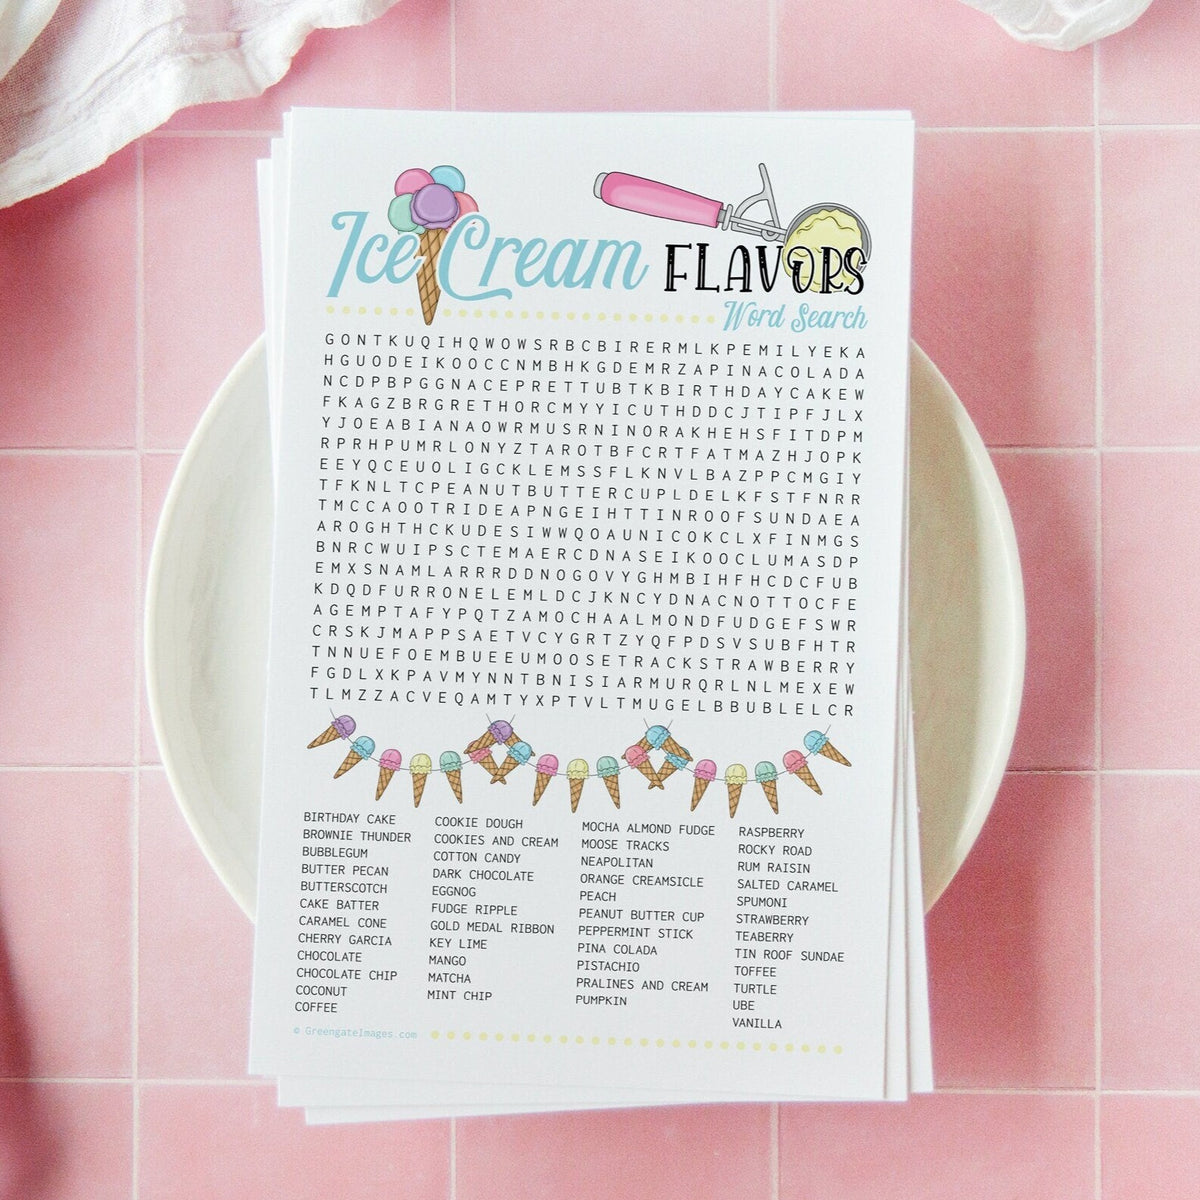 Ice Cream FLAVORS
Word Search
G O N T K U Q I H Q W O W S R B C B I R E R M L K P E M I L Y E K A
H G U O D E I K O O C C N M B H K G D E M R Z A P I N A C O L A D A
N C D P B P G G N A C E P R E T T U B T K B I R T H D A Y C A K E W
F K A G Z B R G R E T H O R C M Y Y I C U T H D D C J T I P F J L X
Y J O E A B I A N A O W R M U S R N I N O R A K H E H S F I T D P M
R P R H P U M R L O N Y Z T A R O T B F C R T F A T M A Z H J O P K
E E Y Q C E U O L I G C K L E M S S F L K N V L B A Z P P C M G I Y
T F K N L T C P E A N U T B U T T E R C U P L D E L K F S T F N R R
T M C C A O O T R I D E A P N G E I H T T I N R O O F S U N D A E A
A R O G H T H C K U D E S I W W Q O A U N I C O K C L X F I N M G S
B N R C W U I P S C T E M A E R C D N A S E I K O O C L U M A S D P
E M X S N A M L A R R R D D N O G O V Y G H M B I H F H C D C F U B
K D Q D F U R R O N E L E M L D C J K N C Y D N A C N O T T O C F E
A G E M P T A F Y P Q T Z A M O C H A A L M O N D F U D G E F S W R
C R S K J M A P P S A E T V C Y G R T Z Y Q F P D S V S U B F H T R
T N N U E F O E M B U E E U M O O S E T R A C K S T R A W B E R R Y
F G D L X K P A V M Y N N T B N I S I A R M U R Q R L N L M E X E W
T L M Z Z A C V E Q A M T Y X P T V L T M U G E L B B U B L E L C R
BIRTHDAY CAKE
BROWNIE THUNDER
BUBBLEGUM
BUTTER PECAN
BUTTERSCOTCH
CAKE BATTER
CARAMEL CONE
CHERRY GARCIA
CHOCOLATE
CHOCOLATE CHIP
COCONUT
COFFEE
COOKIE DOUGH
COOKIES AND CREAM
COTTON CANDY
DARK CHOCOLATE
EGGNOG
FUDGE RIPPLE
GOLD MEDAL RIBBON
KEY LIME
MANGO
MATCHA
MINT CHIP
MOCHA ALMOND FUDGE
MOOSE TRACKS
NEAPOLITAN
ORANGE CREAMSICLE
PEACH
PEANUT BUTTER CUP
PEPPERMINT STICK
PINA COLADA
PISTACHIO
PRALINES AND CREAM
PUMPKIN
RASPBERRY
ROCKY ROAD
RUM RAISIN
SALTED CARAMEL
SPUMONI
STRAWBERRY
TEABERRY
TIN ROOF SUNDAE
TOFFEE
TURTLE
UBE
VANILLA
© GreengateImages.com